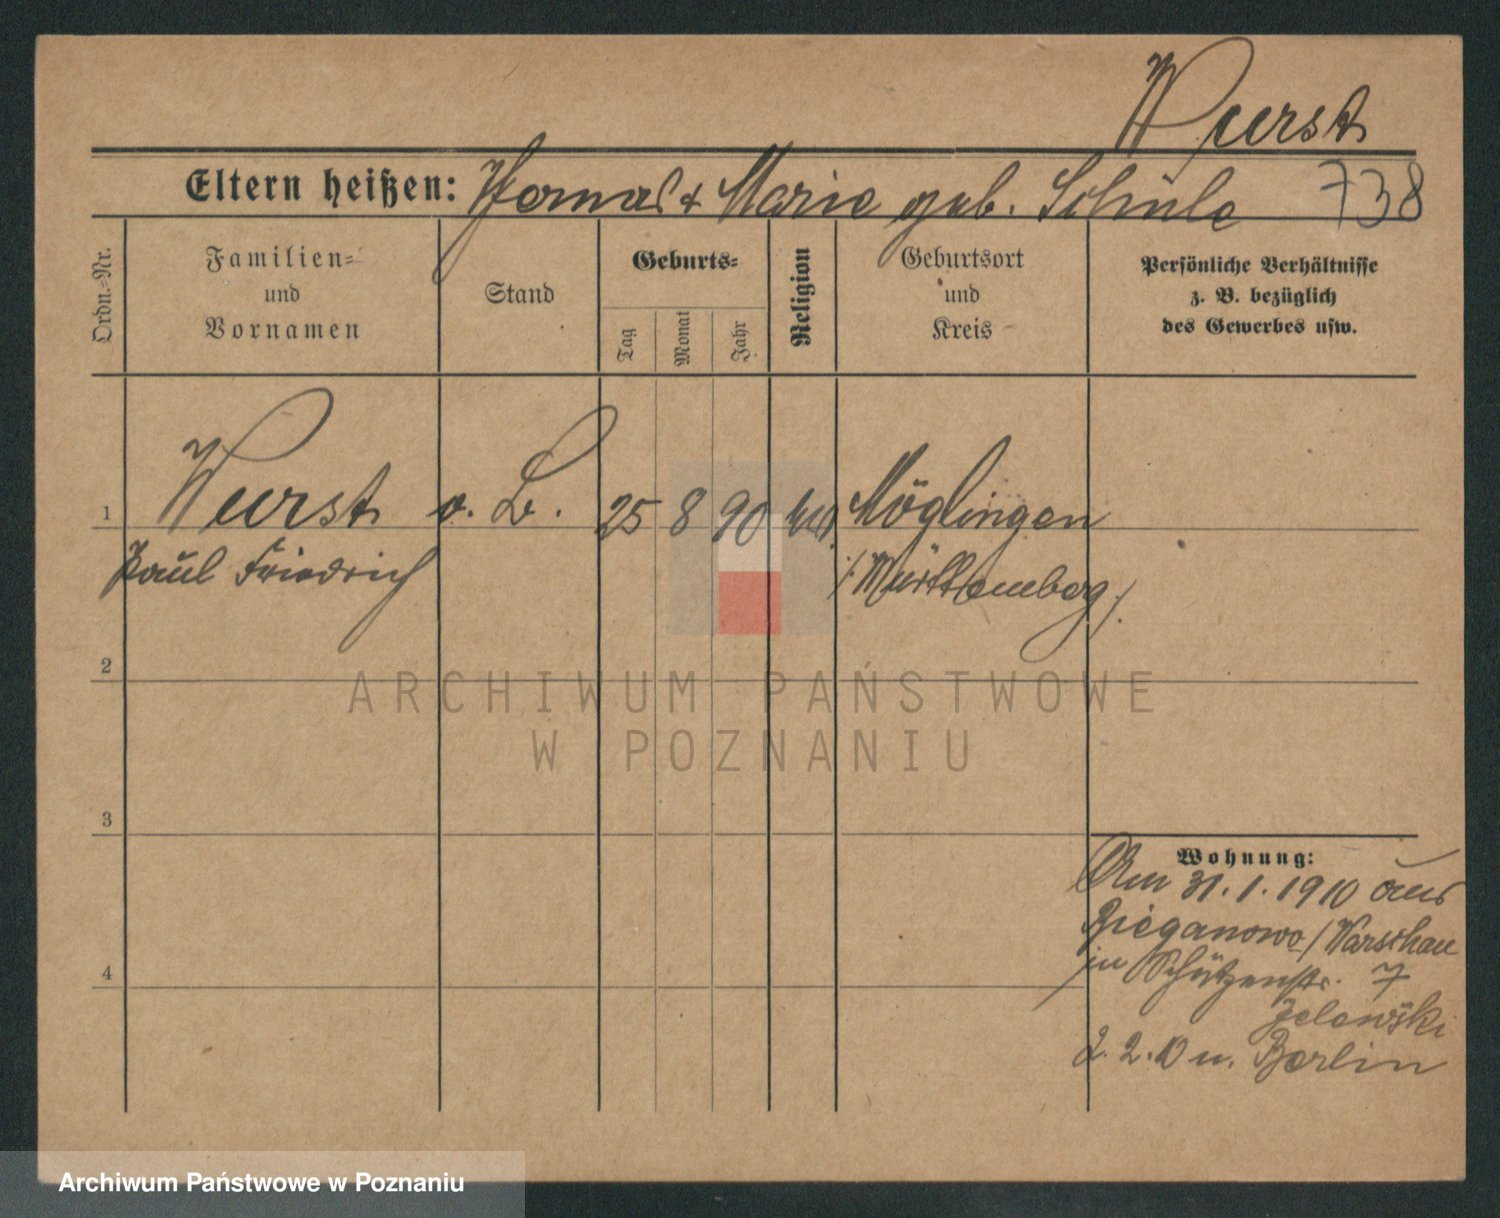 Wurst
Eltern heißen: Thomas + Marie geb. Schüle 738
Ordn.-Nr.
Familien-
und
Vornamen
Stand
Geburts-
Tag
Monat
Jahr
Religion
Geburtsort
und
Kreis
Persönliche Verhältnisse
z. B. bezüglich
des Gewerbes usw.
1 Wurst o. B. 25 8 90 Möglingen
Paul Friedrich /Württemberg/.
2
ARCHIWUM PAŃSTWOWE
W POZNANIU
3
Wohnung:
Am 31.1.1910 aus
Bieganowo/Warschau
in Schützenstr. 7
4
2.2.10 n. Berlin
Archiwum Państwowe w Poznaniu